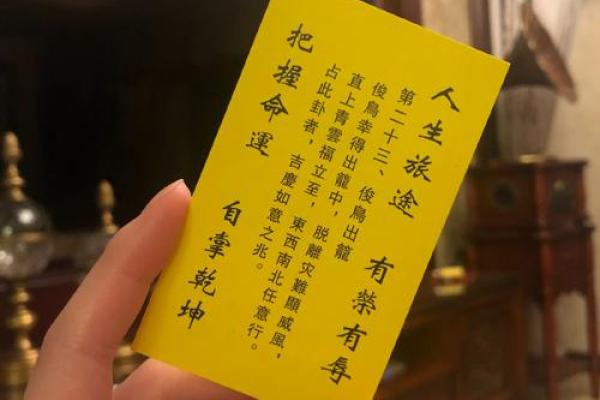 人生旅途 有榮有辱
第二十三、俊鳥出龍
俊鳥幸得出龍中，脫離灾難顯威風，
直上青雲福立至，東西南北任意行。
占此卦者，吉慶如意之兆。
把握命運 自掌乾坤